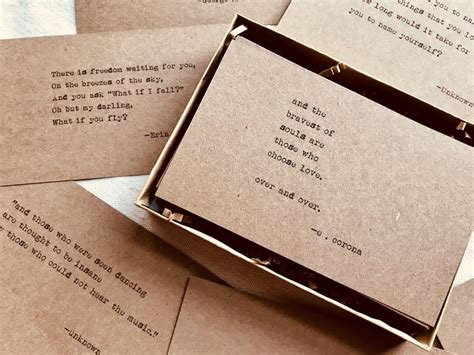 There is freedom waiting for you,
On the breezes of the sky,
And you ask "What if I fall?"
Oh but my darling,
What if you fly?
—Erin
things that you lo
long would it take for
you to name yourself?
—Unknown
and the
bravest of
souls are
those who
choose love.
over and over.
—e . corona
"and those who were seen dancing
are thought to be insane
those who could not hear the music."
—unknown